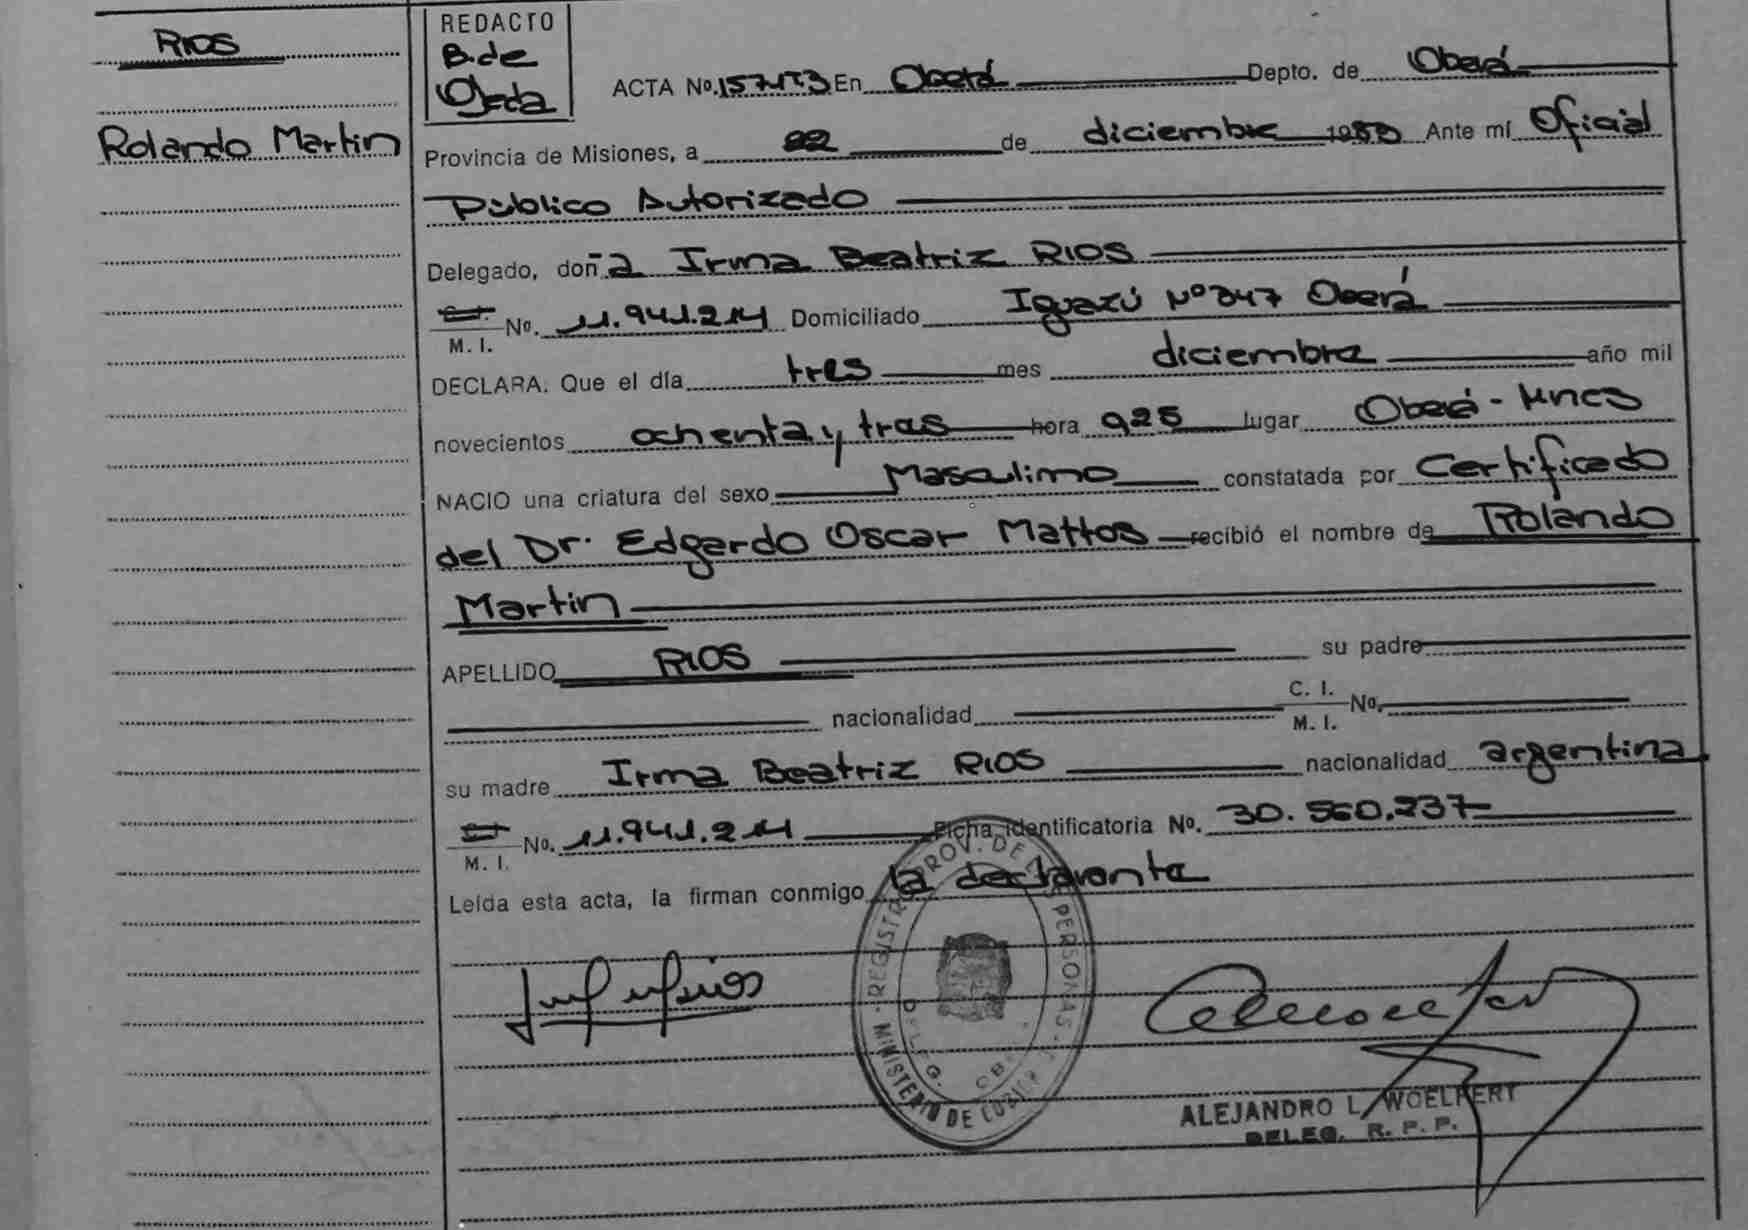 RIOS
Rolando Martin
REDACTO
B. de
Ojeda
ACTA No. En Oberá Depto. de Oberá
Provincia de Misiones, a 22 de diciembre 1983 Ante mí Oficial
Público Autorizado
Delegado, doña Irma Beatriz RIOS
M. I. No. 11.941.214 Domiciliado Iguazú Nº Oberá
DECLARA. Que el día tres mes diciembre año mil
novecientos ochenta y tres hora 925 lugar Oberá - Mnes
NACIO una criatura del sexo Masculino constatada por Certificado
del Dr. Edgardo Oscar Mattos recibió el nombre de Rolando
Martin
APELLIDO RIOS su padre
nacionalidad C. I. M. I. No.
su madre Irma Beatriz RIOS nacionalidad argentina
M. I. No. 11.941.214 Ficha identificatoria No. 30.560.237
Leída esta acta, la firman conmigo la declarante
REGISTRO PROV. DE LAS PERSONAS
MINISTERIO DE
DELEG.
ALEJANDRO L. WOELFERT
DELEG. R. P. P.